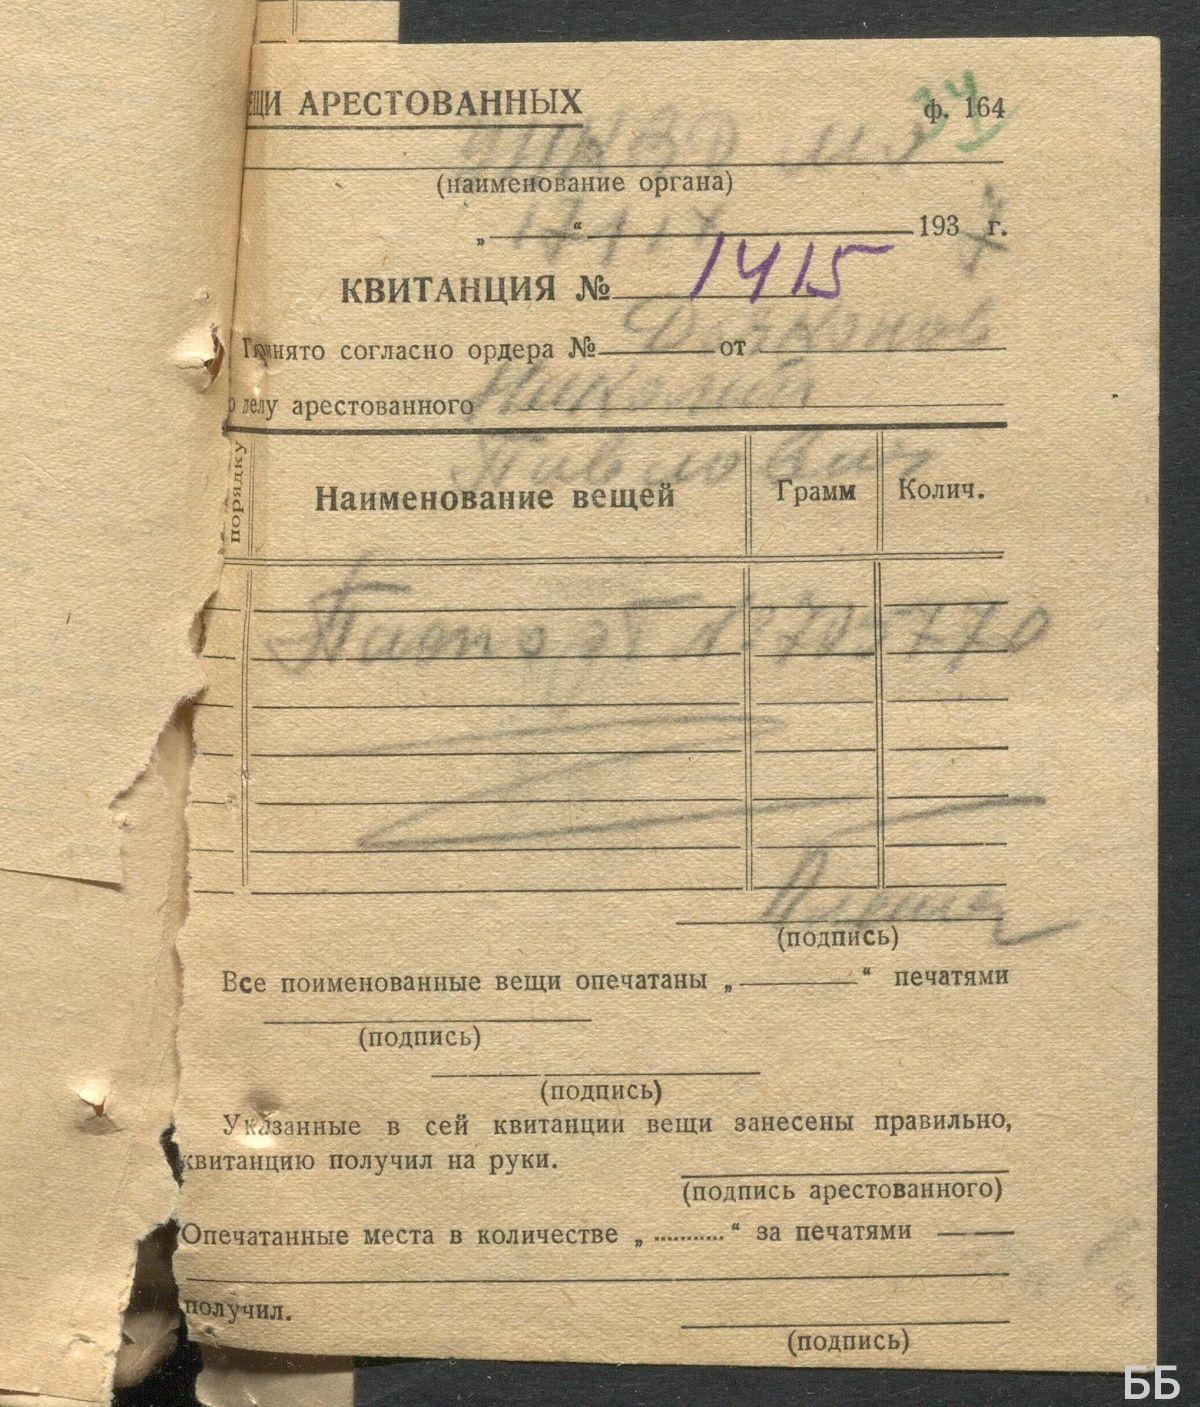 ЕЩИ АРЕСТОВАННЫХ
ф. 164
34
(наименование органа)
„ 17 “ 1937 г.
КВИТАНЦИЯ № 1415
Принято согласно ордера № от
о делу арестованного
Николай
Павлович
порядку
Наименование вещей Грамм Колич.
Паспорт №
(подпись)
Все поименованные вещи опечатаны „ “ печатями
(подпись)
(подпись)
Указанные в сей квитанции вещи занесены правильно,
квитанцию получил на руки.
(подпись арестованного)
Опечатанные места в количестве „ ........... “ за печатями
получил.
(подпись)
ББ